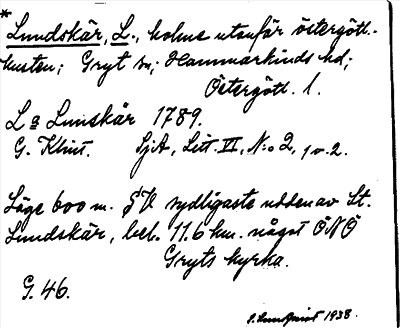 * Lundskär, L., holme utanför östergött.-
kusten; Gryt sn; Hammarkinds hd;
Östergötl. l.
La Lunskär 1789.
G. Klint. SjA, Litt. VI, N:o 2, 1 o. 2.
Läge 600 m. SV sydligaste udden av St.
Lundskär, bel. 11.6 km. något ÖNÖ
Gryts kyrka.
G. 46.
S. Lundqvist 1938.